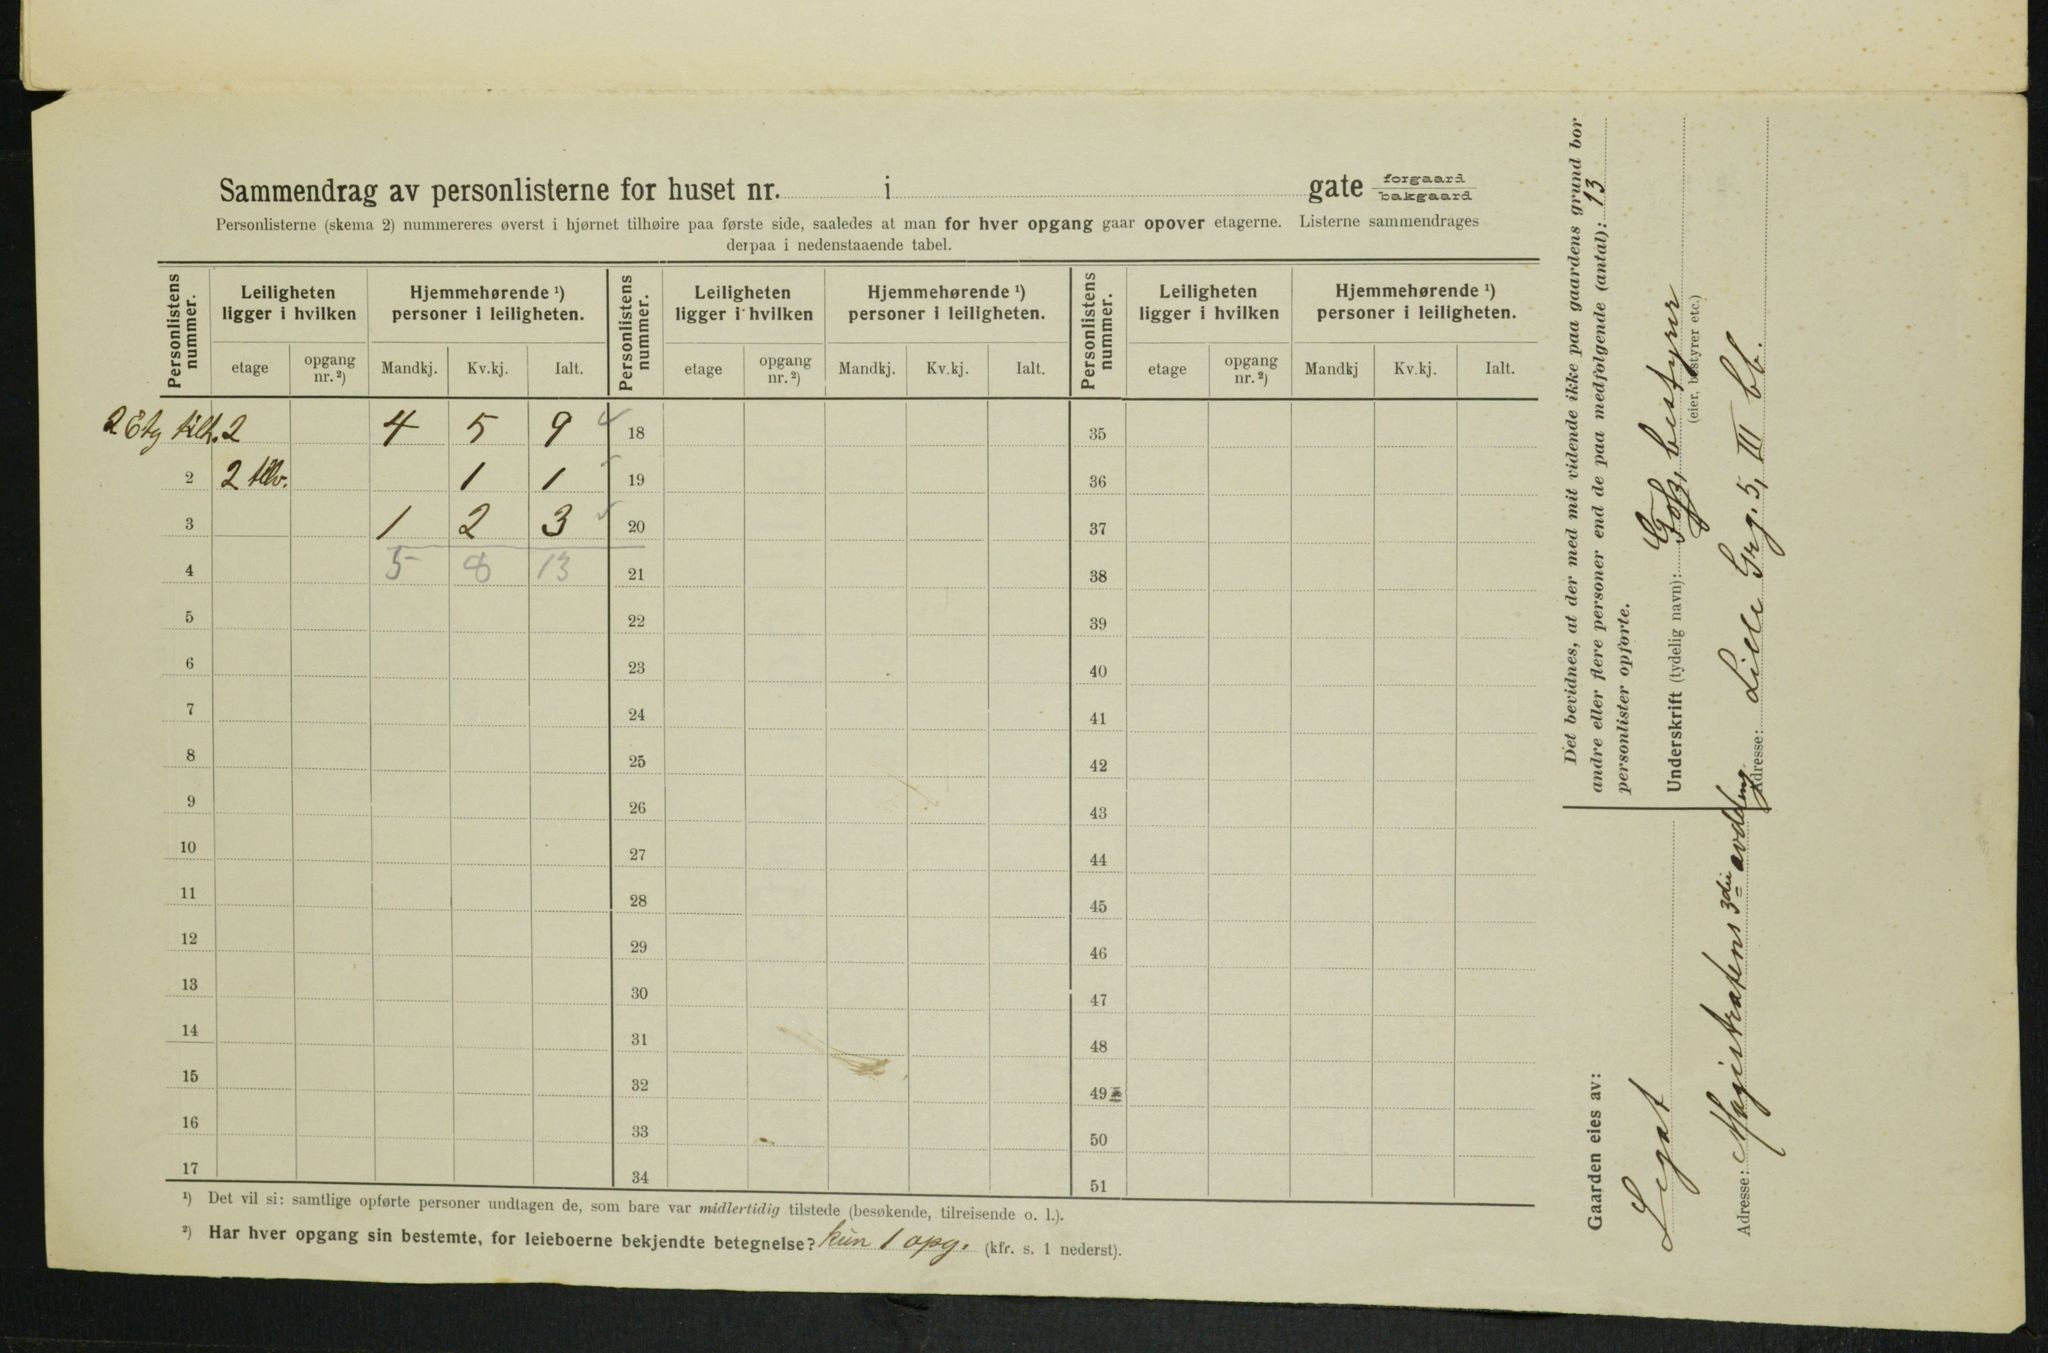 Sammendrag av personlisterne for huset nr. i gate forgaard
bakgaard
Personlisterne (skema 2) nummereres øverst i hjørnet tilhøire paa første side, saaledes at man for hver opgang gaar opover etagerne. Listerne sammendrages
derpaa i nedenstaaende tabel.
Personlistens nummer. Leiligheten ligger i hvilken Hjemmehørende ¹) personer i leiligheten. Personlistens nummer. Leiligheten ligger i hvilken Hjemmehørende ¹) personer i leiligheten. Personlistens nummer. Leiligheten ligger i hvilken Hjemmehørende ¹) personer i leiligheten.
etage opgang nr. ²) Mandkj. Kv.kj. Ialt. etage opgang nr. ²) Mandkj. Kv.kj. Ialt. etage opgang nr. ²) Mandkj Kv.kj. Ialt.
2 Etg 2 4 5 9 18 35
2 2 1 1 19 36
3 1 2 3 20 37
4 5 8 13 21 38
5 22 39
6 23 40
7 24 41
8 25 42
9 26 43
10 27 44
11 28 45
12 29 46
13 30 47
14 31 48
15 32 49
16 33 50
17 34 51
¹) Det vil si: samtlige opførte personer undtagen de, som bare var midlertidig tilstede (besøkende, tilreisende o. l.).
²) Har hver opgang sin bestemte, for leieboerne bekjendte betegnelse? kun 1 opg. (kfr. s. 1 nederst).
Det bevidnes, at der med mit vidende ikke paa gaardens grund bor
andre eller flere personer end de paa medfølgende (antal): 13
personlister opførte.
Underskrift (tydelig navn): bestyrer
(eier, bestyrer etc.)
Adresse: Lille Grg. 5, III bb.
Gaarden eies av:
Legat
Adresse: Magistratens 3die avdeling